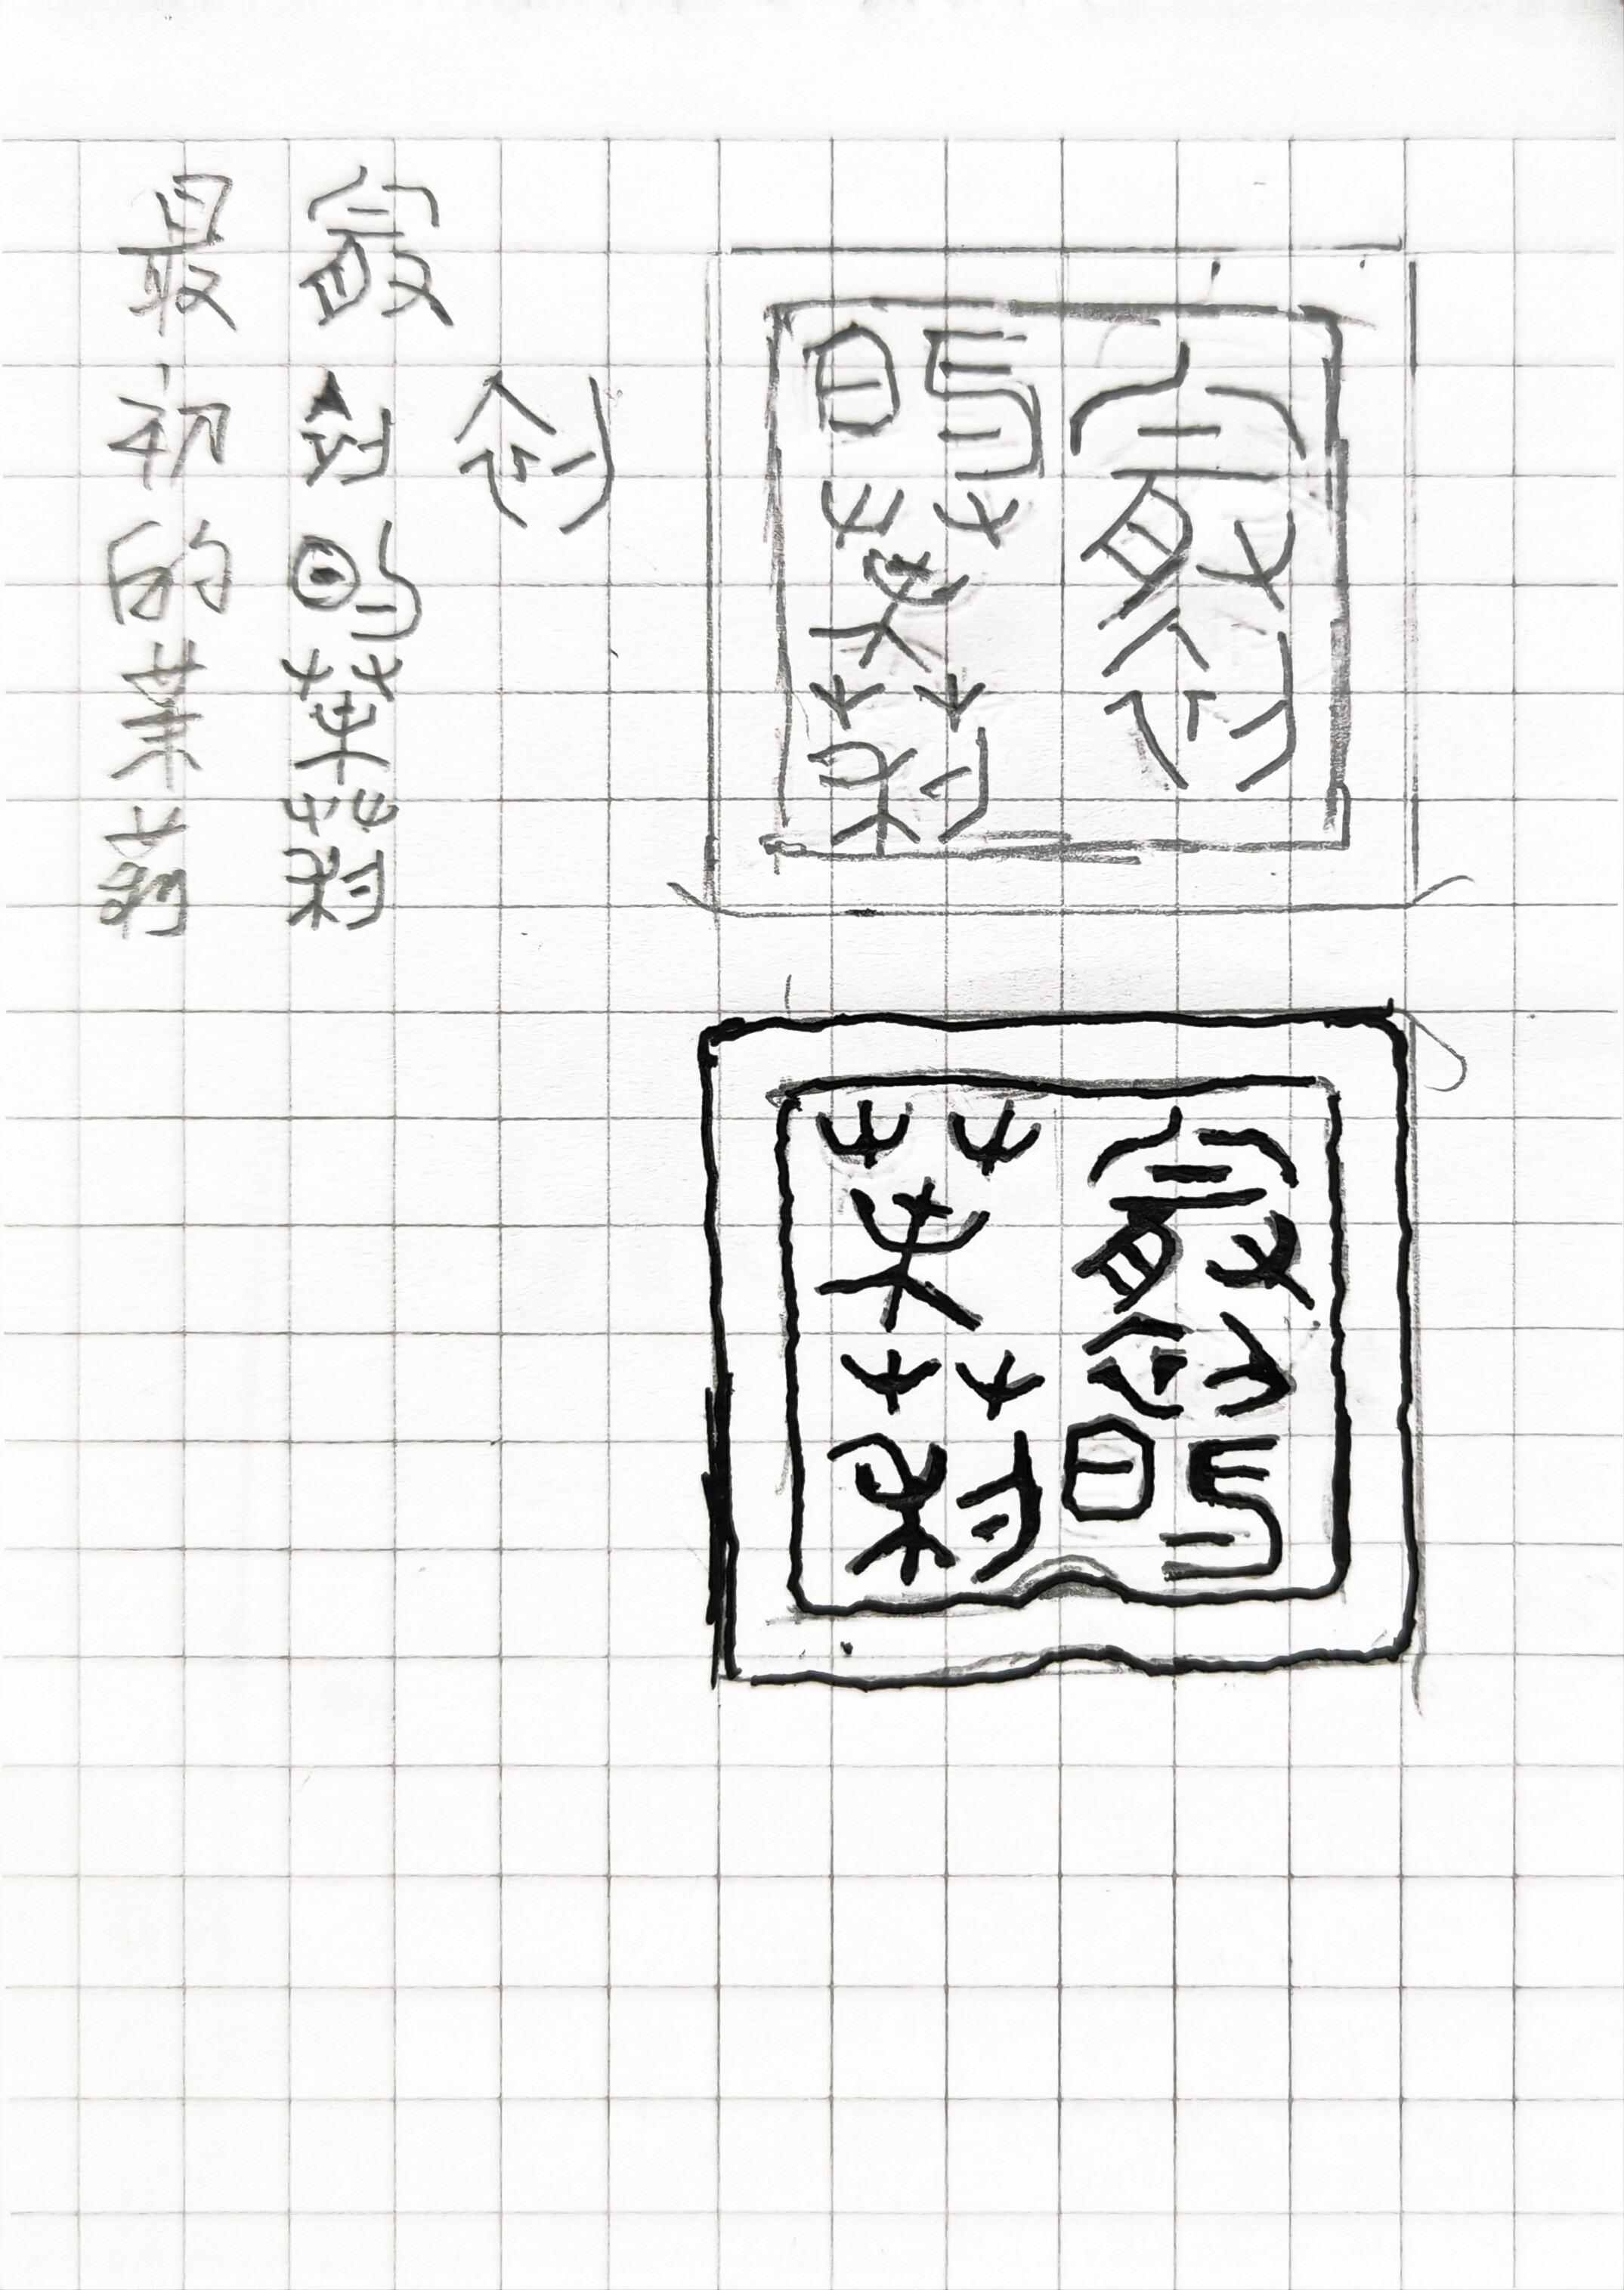 最初的茉莉
最初的茉莉
初
最初
的茉莉
最初的
茉莉